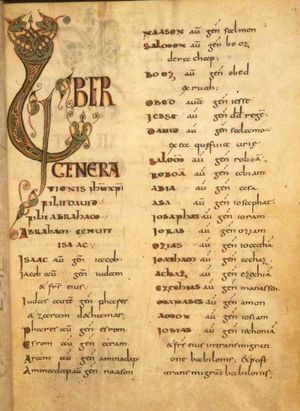 LIBER
GENERA
TIONIS IHU XPI
FILII DAVID
FILII ABRAHAM
ABRAHAM GENUIT
ISAAC
ISAAC aū gen iacob
Iacob aū gen iudam
& frs eius
Iudas autē gen phares
& zaram dethamar
Phares aū gen esrom
Esrom aū gen aram
Aram aū gen aminadap
Aminadap aū gen naason
NAASON aū gen salmon
SALMON aū gen booz
de rachap
BOOZ aū gen obed
ex ruth
OBED autē gen iesse
IESSE aū gen dd regē
DAVID aū gen salomo
ex ea que fuit urie
SALOMO aū gen roboā
ROBOA aū gen abiam
ABIA aū gen asa
ASA aū gen iosaphat
IOSAPHAT aū gen ioram
IORAS aū gen oziam
OZIAS aū gen ioathā
IOATHAM aū gen achaz
ACHAZ aū gen ezechiā
EZECHIAS aū gen manassen
MANASSES aū gen amon
AMON aū gen iosiam
IOSIAS aū gen iechoniā
& frs eius in transmigrati
one babilonis, & post
transmigratī babilonis